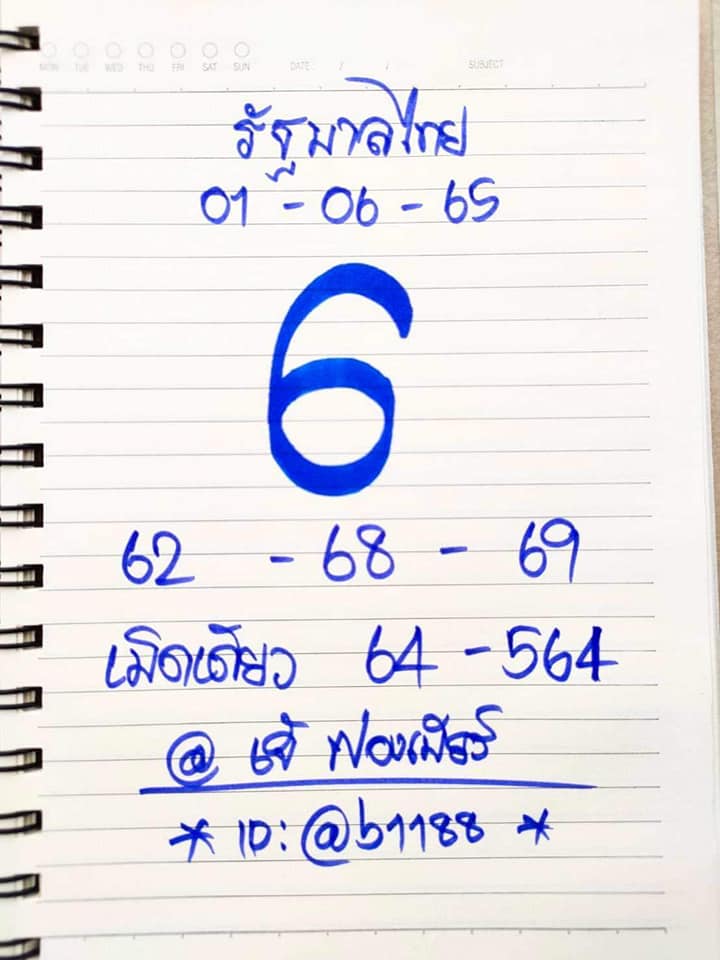 MON TUE WED THU FRI SAT SUN DATE / / SUBJECT
รัฐบาลไทย
01 - 06 - 65
6
62 - 68 - 69
เม็ดเดียว 64 - 564
@ เจ๊ ฟองเบียร์
* ID: @b1188 *